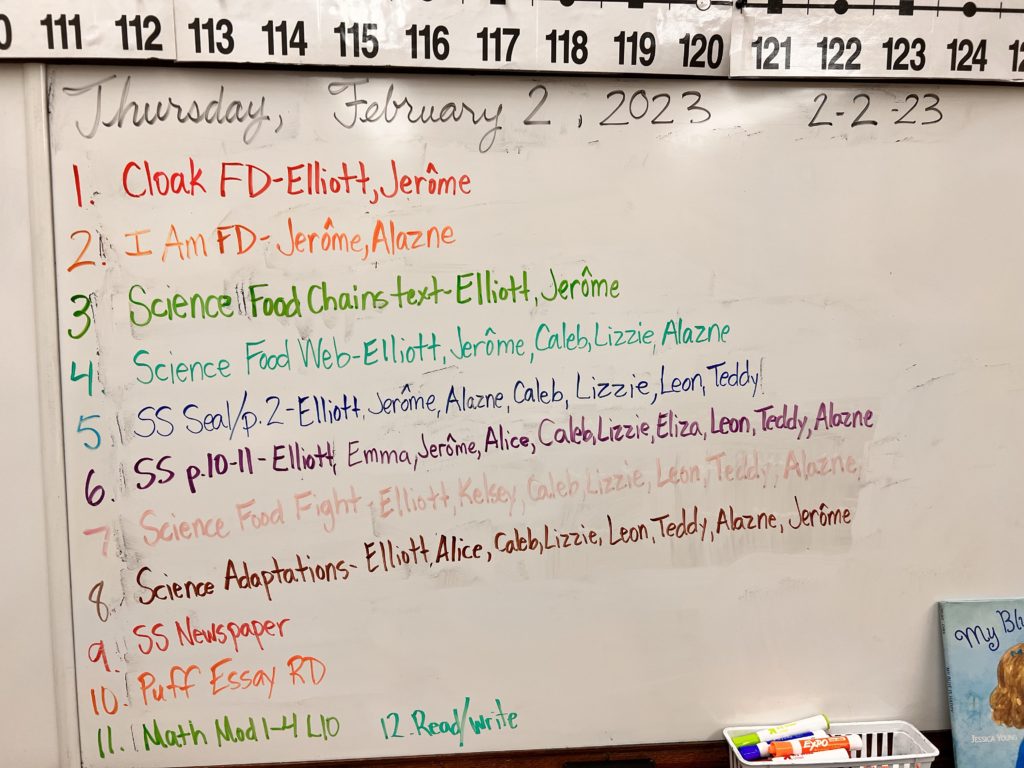 0 111 112 113 114 115 116 117 118 119 120 121 122 123 124 12
Thursday, February 2, 2023 2-2-23
1. Cloak FD-Elliott, Jerôme
2. I Am FD-Jerôme, Alazne
3 Science Food Chains text-Elliott, Jerôme
4. Science Food Web-Elliott, Jerôme, Caleb, Lizzie, Alazne
5. SS Seal/p.2-Elliott, Jerôme, Alazne, Caleb, Lizzie, Leon, Teddy
6. SS p.10-11-Elliott, Emma, Jerôme, Alice, Caleb, Lizzie, Eliza, Leon, Teddy, Alazne
7. Science Food Fight-Elliott, Kelsey, Caleb, Lizzie, Leon, Teddy, Alazne,
8. Science Adaptations-Elliott, Alice, Caleb, Lizzie, Leon, Teddy, Alazne, Jerôme
9. SS Newspaper
10. Puff Essay RD
11. Math Mod 1-4 L10 12. Read/write
My Bl
JESSICA YOUNG
EXPO